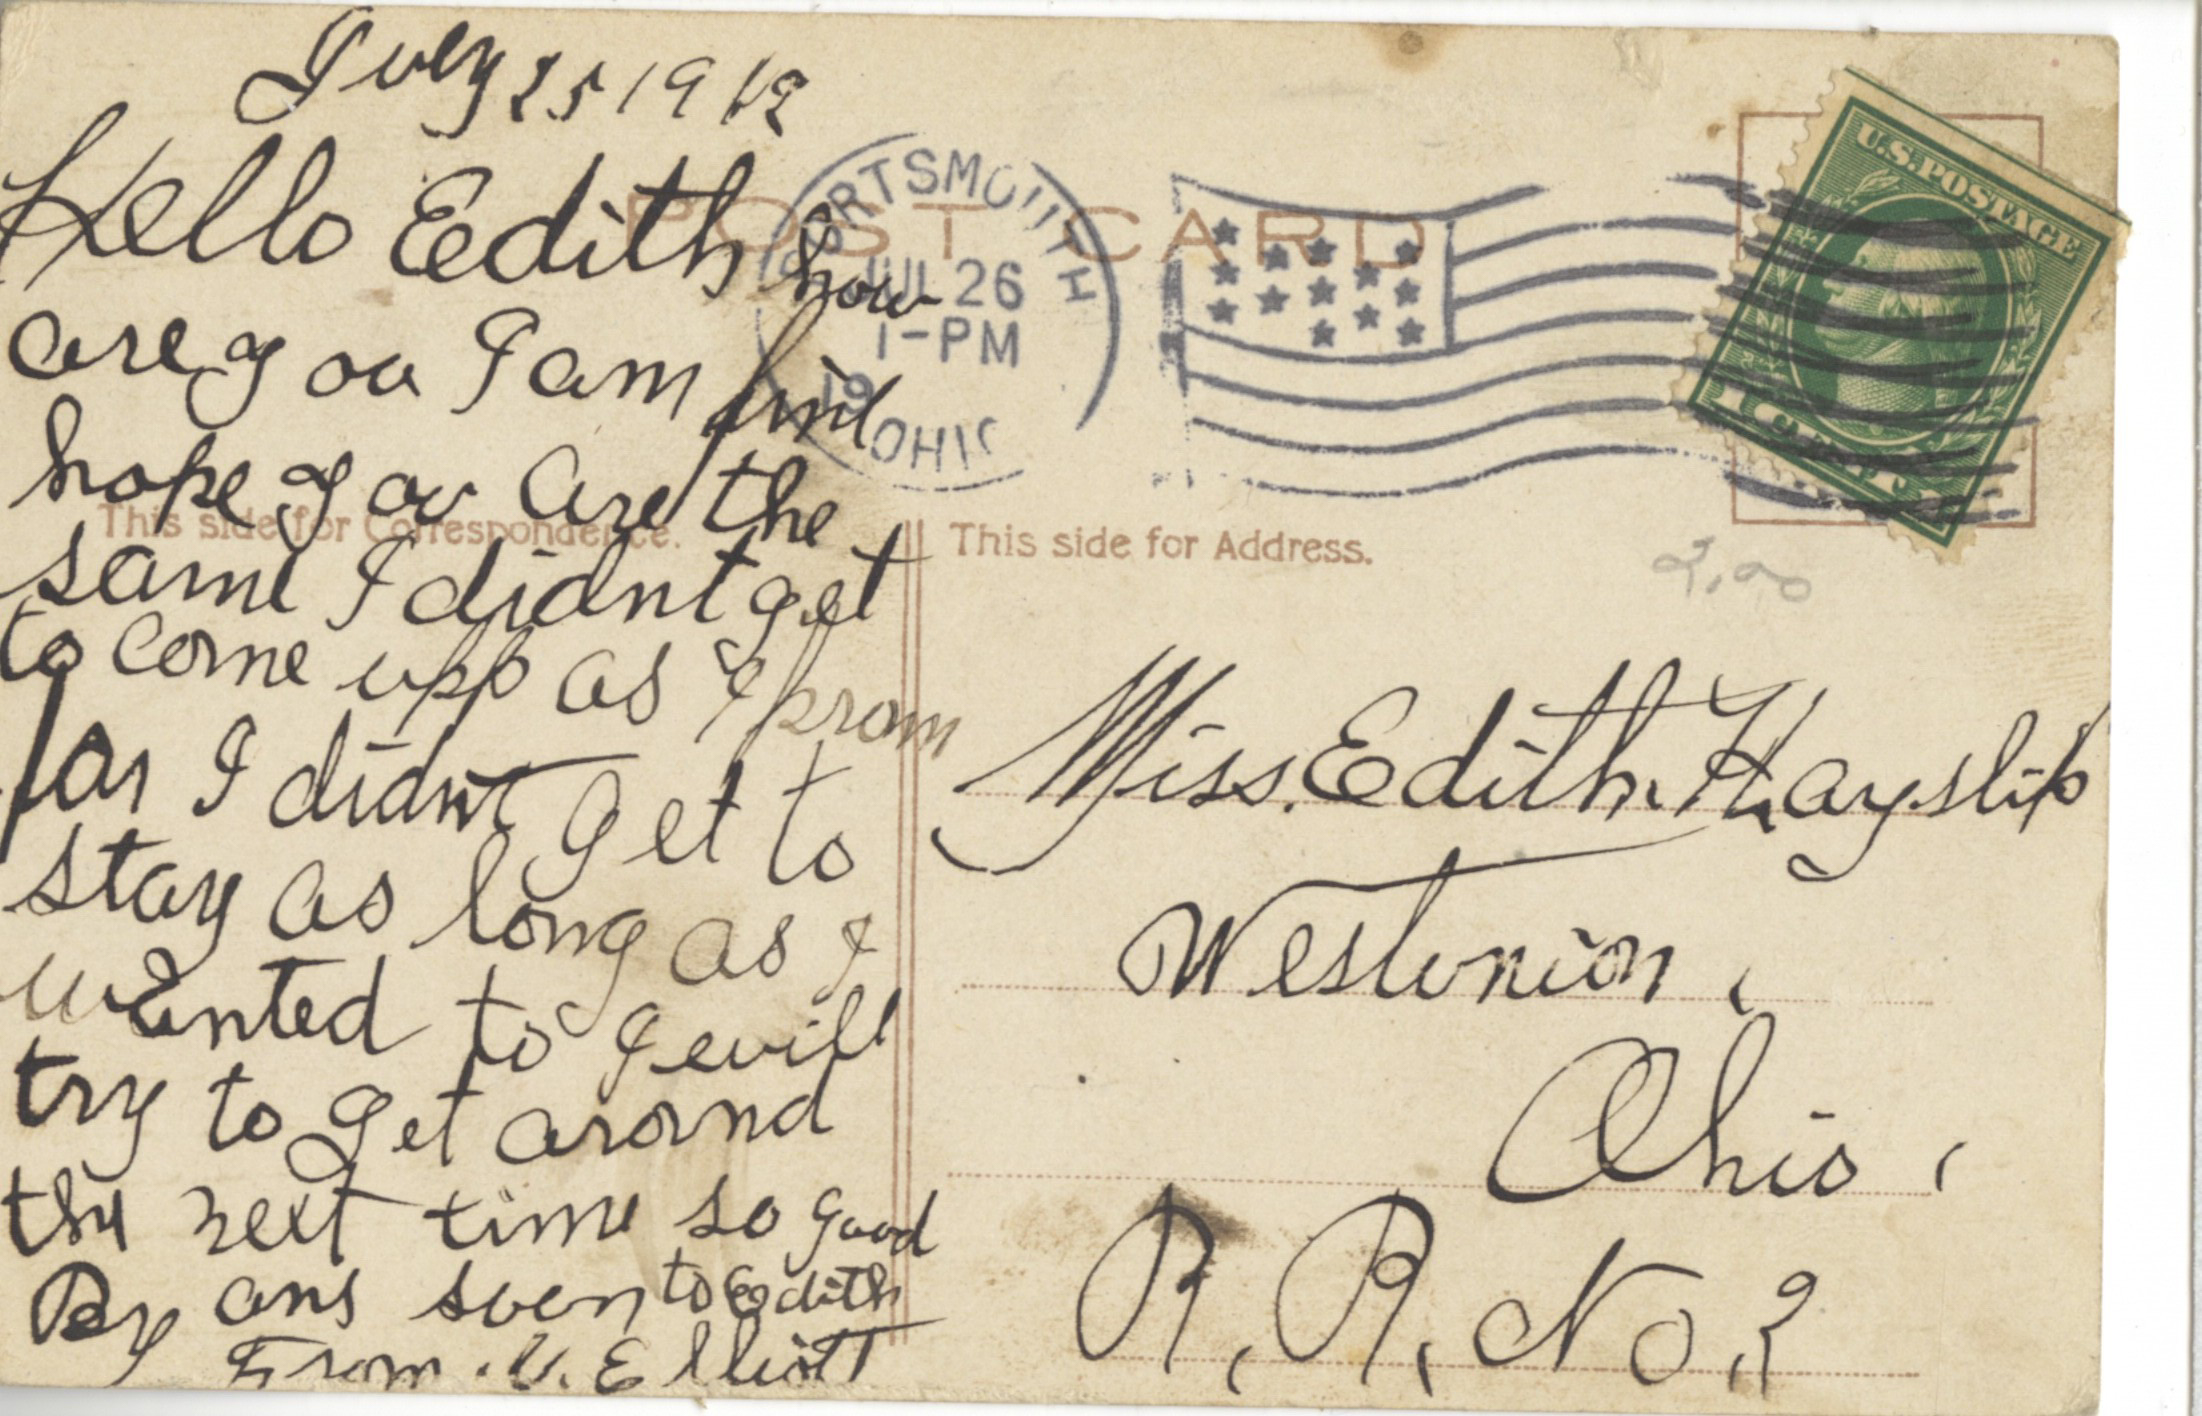 July 25 1912
Hello Edith how
are you I am fine
hope you are the
same I didnt get
to come upp as I prom
for I didnt get to
stay as long as I
wanted to I will
try to get around
the next time so good
By ans soon to Edith
From . V. Elliott
POST CARD
PORTSMOUTH
JUL 26
1-PM
19
OHIO
U.S. POSTAGE
1 CENT 1
This side for Correspondence.
This side for Address.
2.00
Miss. Edith. Hayslip
Westunion,
Ohio,
R. R. No. 2